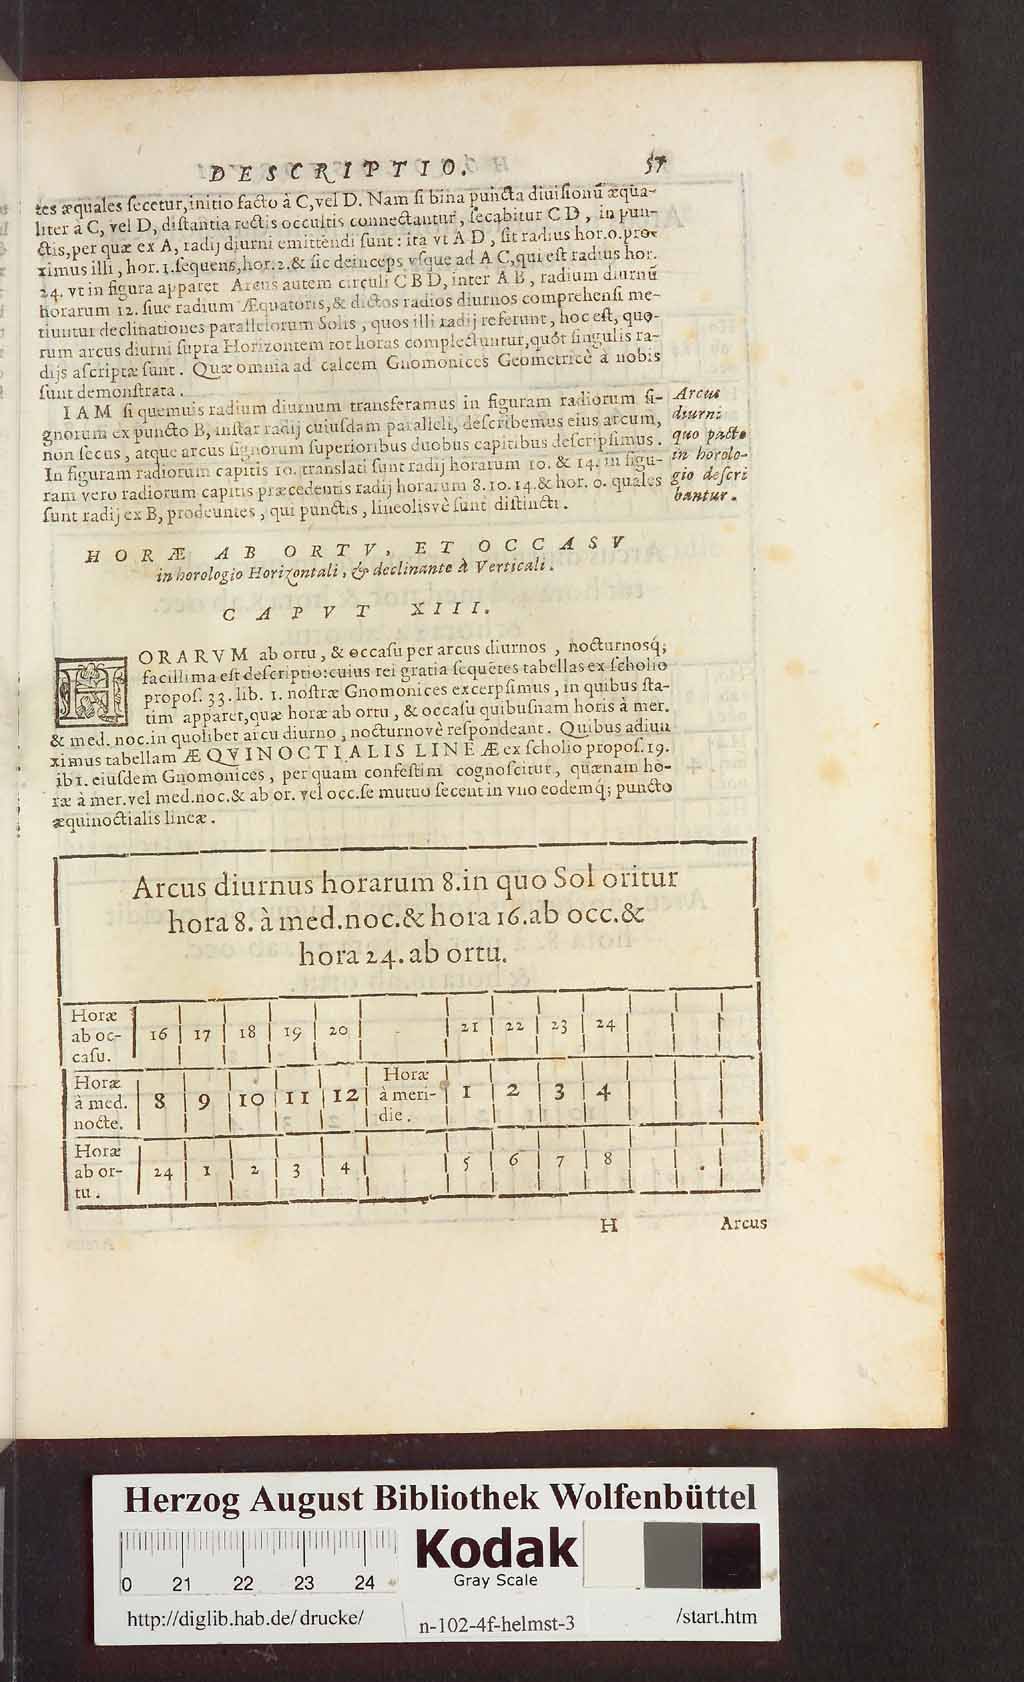 DESCRIPTIO. 57
tes æquales ſecetur, initio facto à C, vel D. Nam ſi bina puncta diuiſionũ æqua-
liter à C, vel D, diſtantia rectis occultis connectantur, ſecabitur C D, in pun-
ctis, per quæ ex A, radij diurni emittẽdi ſunt: ita vt A D, ſit radius hor. 0. pro-
ximus illi, hor. 1. ſequens, hor. 2. & ſic deinceps vſque ad A C, qui eſt radius hor.
24. vt in figura apparet Arcus autem circuli C B D, inter A B, radium diurnũ
horarum 12. ſiue radium Æquatoris, & dictos radios diurnos comprehenſi me-
tiuntur declinationes parallelorum Solis, quos illi radij referunt, hoc eſt, quo-
rum arcus diurni ſupra Horizontem tot horas complectuntur, quòt ſingulis ra-
dijs aſcriptæ ſunt. Quæ omnia ad calcem Gnomonices Geometricè à nobis
ſunt demonſtrata.
IAM ſi quemuis radium diurnum transferamus in figuram radiorum ſi-
gnorum ex puncto B, inſtar radij cuiuſdam paralleli, deſcribemus eius arcum,
non ſecus, atque arcus ſignorum ſuperioribus duobus capitibus deſcripſimus.
In figuram radiorum capitis 10. translati ſunt radij horarum 10. & 14. in figu-
ram vero radiorum capitis præcedentis radij horarum 8. 10. 14. & hor. 0. quales
ſunt radij ex B, prodeuntes, qui punctis, lineolisvè ſunt diſtincti.
Arcus
diurni
quo pacto
in horolo-
gio deſcri
bantur.
HORÆ AB ORTV, ET OCCASV
in horologio Horizontali, & declinante à Verticali.
CAPVT XIII.
HORARVM ab ortu, & occaſu per arcus diurnos, nocturnosq;
facillima eſt deſcriptio: cuius rei gratia ſequẽtes tabellas ex ſcholio
propoſ. 33. lib. 1. noſtræ Gnomonices excerpſimus, in quibus ſta-
tim apparet, quæ horæ ab ortu, & occaſu quibuſnam horis à mer.
& med. noc. in quolibet arcu diurno, nocturnovè reſpondeant. Quibus adiun
ximus tabellam ÆQVINOCTIALIS LINEÆ ex ſcholio propoſ. 19.
ib 1. eiuſdem Gnomonices, per quam confeſtim cognoſcitur, quænam ho-
ræ à mer. vel med. noc. & ab or. vel occ. ſe mutuo ſecent in vno eodemq; puncto
æquinoctialis lineæ.
Arcus diurnus horarum 8. in quo Sol oritur
hora 8. à med. noc. & hora 16. ab occ. &
hora 24. ab ortu.
Horæ
ab oc- 16 17 18 19 20 21 22 23 24
caſu.
Horæ Horæ
à med. 8 9 10 11 12 à meri- 1 2 3 4
nocte. die.
Horæ
ab or- 24 1 2 3 4 5 6 7 8
tu.
H Arcus
Herzog August Bibliothek Wolfenbüttel
Kodak
Gray Scale
0 21 22 23 24
http://diglib.hab.de/drucke/ n-102-4f-helmst-3 /start.htm